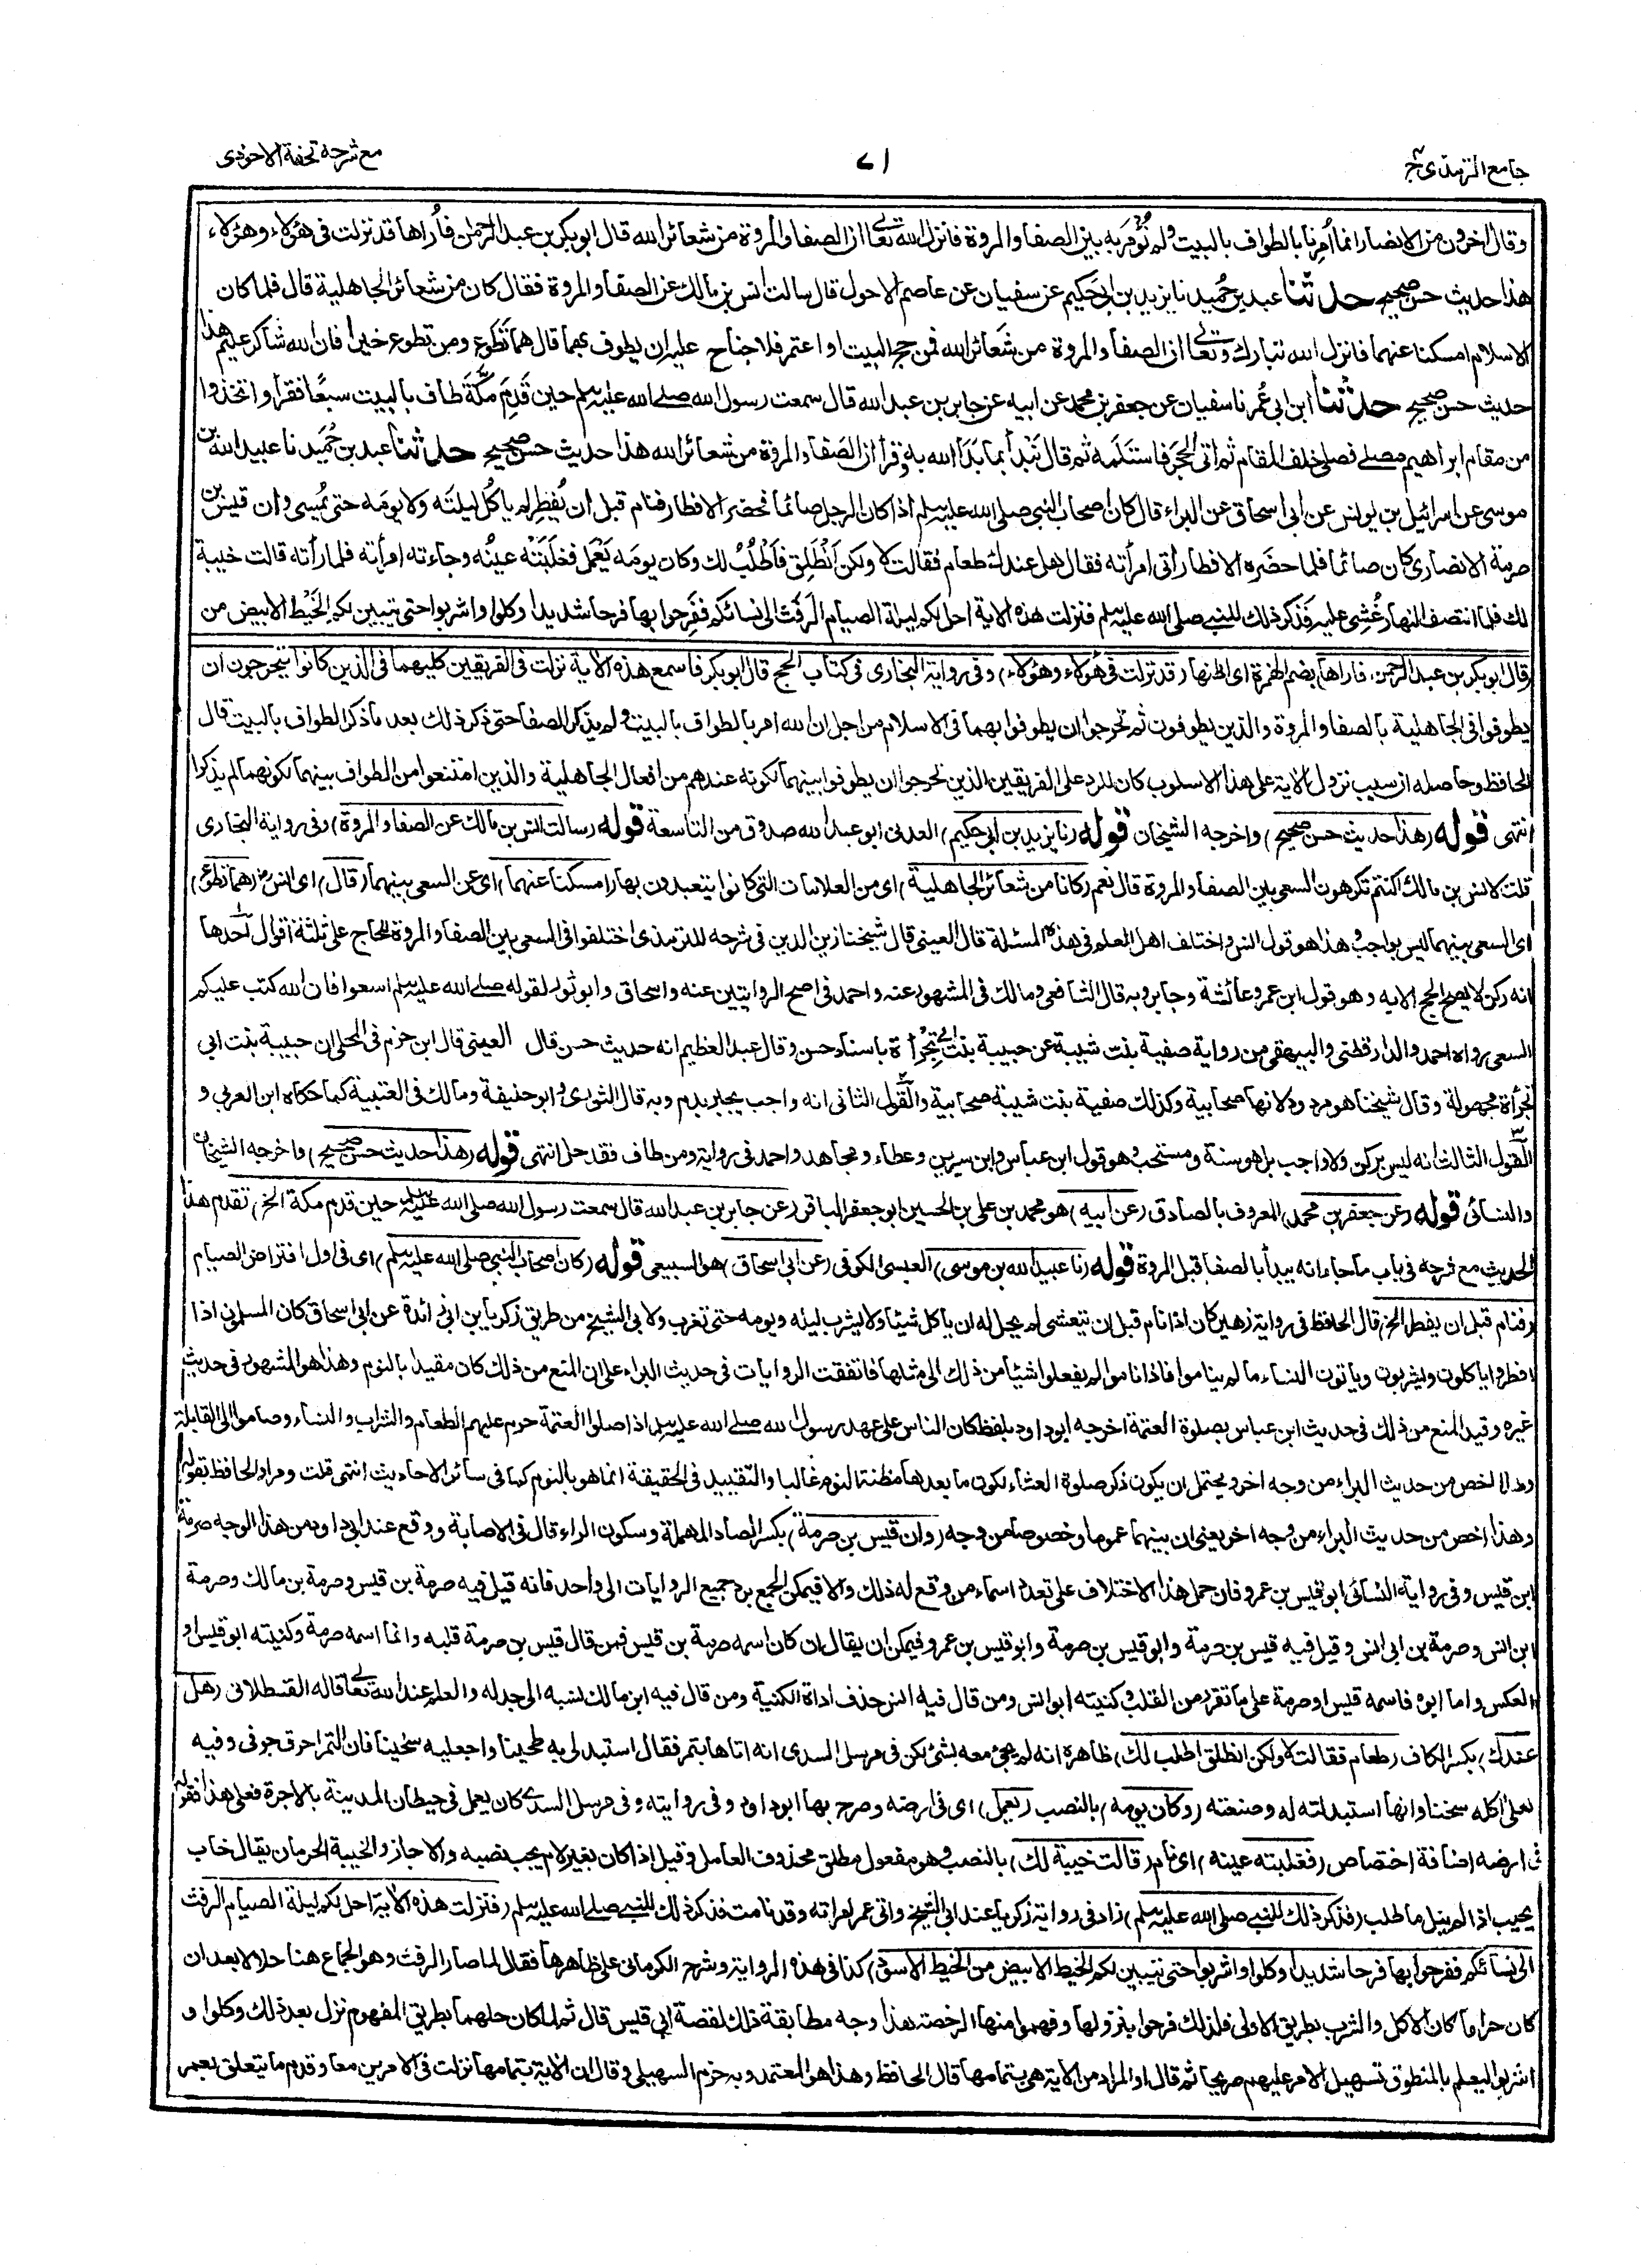 جامع الترمذى ج۴
۷۱
مع شرحه تحفة الاحوذى
وقال اخرون من الانصار انما اُمِرنا بالطواف بالبيت ولم نُؤمَر به بين الصفا والمروة فانزل الله تعالى ان الصفا والمروة من شعائر الله قال ابو بكر بن عبد الرحمٰن فأُراها قد نزلت فى هؤلاء وهؤلاء
هذا حديث حسن صحيح حدثنا عبد بن حُميد نا يزيد بن ابى حَكيم عن سفيان عن عاصم الاحول قال سالت انس بن مالك عن الصفا والمروة فقال كان من شعائر الجاهلية قال فلما كان
الاسلام امسكنا عنهما فانزل الله تبارك وتعالى ان الصفا والمروة من شعائر الله فمن حج البيت او اعتمر فلا جناح عليه ان يطوف بهما قال هما تَطَوُّع ومن تطوع خيرا فان الله شاكر عليم هذا
حديث حسن صحيح حدثنا ابن ابى عُمر نا سفيان عن جعفر بن محمد عن ابيه عن جابر بن عبد الله قال سمعت رسول الله صلى الله عليه وسلم حين قَدِمَ مكَّةَ طاف بالبيت سبعًا فقرأ واتخذوا
من مقام ابراهيم مصلے فصلى خلف المقام ثم اتى الحجر فاستَلَمه ثم قال نَبْدأ بما بَدَأ الله به وقرأ ان الصَفا والمروة من شعائر الله هذا حديث حسن صحيح حدثنا عبد بن حُمَيد نا عبيد الله بن
موسى عن اسرائيل بن يونس عن ابى اسحاق عن البراء قال كان اصحاب النبى صلى الله عليه وسلم اذا كان الرجل صائما فحضر الافطار فنام قبل ان يُفطِر لم ياكُل ليلتَه ولا يومَه حتى يُمسِى وان قيس بن
صرمة الانصارى كان صائما فلما حضَره الافطار أتى امرأته فقال هل عندك طعام فقالت لا ولكن اَنْطَلِق فاَطْلُبُ لك وكان يومَه يَعْمَل فغلبَتْه عينُه وجاءته امرأته فلما رأته قالت خيبة
لك فلما انتصف النهار غُشِى عليه فذكر ذلك للنبى صلى الله عليه وسلم فنزلت هذه الاية احل لكم ليلة الصيام الرَفَث الى نسائكم ففَرِحوا بها فرحا شديدا وكلوا واشربوا حتى يتبين لكم الخَيْط الابيض من
(قال ابو بكر بن عبد الرحمن فاراها) بضم الهمزة اى اظنها (قد نزلت فى هؤلاء وهؤلاء) وفى رواية البخارى فى كتاب الحج قال ابو بكر فاسمع هذه الاية نزلت فى الفريقين كليهما فى الذين كانوا يتحرجون ان
يطوفوا فى الجاهلية بالصفا والمروة والذين يطوفون ثم تحرجوا ان يطوفوا بهما فى الاسلام من اجل ان الله امر بالطواف بالبيت ولم يذكر الصفا حتى ذكر ذلك بعد ما ذكر الطواف بالبيت قال
الحافظ وحاصله ان سبب نزول الاية على هذا الاسلوب كان للرد على الفريقين الذين تحرجوا ان يطوفوا بينهما لكونه عندهم من افعال الجاهلية والذين امتنعوا من الطواف بينهما لكونهما لم يذكرا
انتهى قوله (هذا حديث حسن صحيح) واخرجه الشيخان قوله (نا يزيد بن ابى حكيم) العدنى ابو عبد الله صدوق من التاسعة قوله (سالت انس بن مالك عن الصفا والمروة) وفى رواية البخارى
قلت لانس بن مالك اكنتم تكرهون السعى بين الصفا والمروة قال نعم (كانا من شعائر الجاهلية) اى من العلامات التى كانوا يتعبدون بها (امسكنا عنهما) اى عن السعى بينهما (قال) اى انس رض (هما تطوع)
اى السعى بينهما ليس بواجب وهذا هو قول انس واختلف اهل العلم فى هذه المسئلة قال العينى قال شيخنا زين الدين فى شرحه للترمذى اختلفوا فى السعى بين الصفا والمروة للحاج على ثلثة اقوال احدها
انه ركن لا يصح الحج الا به وهو قول ابن عمر وعائشة وجابر وبه قال الشافعى ومالك فى المشهور عنه واحمد فى اصح الروايتين عنه واسحاق وابو ثور لقوله صلى الله عليه وسلم اسعوا فان الله كتب عليكم
السعى رواه احمد والدارقطنى والبيهقى من رواية صفية بنت شيبة عن حبيبة بنت ابى تِجْرأة باسناد حسن وقال عبد العظيم انه حديث حسن قال العينى قال ابن حزم فى المحلى ان حبيبة بنت ابى
تجرأة مجهولة وقال شيخنا هو مردود لانها صحابية وكذلك صفية بنت شيبة صحابية والقول الثانى انه واجب يجبر بدم وبه قال الثورى وابو حنيفة ومالك فى العتبية كما حكاه ابن العربى و
القول الثالث انه ليس بركن ولا واجب بل هو سنة ومستحب وهو قول ابن عباس وابن سيرين وعطاء ومجاهد واحمد فى رواية ومن طاف فقد حل انتهى قوله (هذا حديث حسن صحيح) واخرجه الشيخان
والنسائى قوله (عن جعفر بن محمد) المعروف بالصادق (عن ابيه) هو محمد بن على بن الحسين ابو جعفر الباقر (عن جابر بن عبد الله قال سمعت رسول الله صلى الله عليه وسلم حين قدم مكة الخ) تقدم هذا
الحديث مع شرحه فى باب ما جاء انه يبدأ بالصفا قبل المروة قوله (نا عبيد الله بن موسى) العبسى الكوفى (عن ابى اسحاق) هو السبيعى قوله (كان اصحاب النبى صلى الله عليه وسلم) اى فى اول افتراض الصيام
(فنام قبل ان يفطر الخ) قال الحافظ فى رواية زهير كان اذا نام قبل ان يتعشى لم يحل له ان ياكل شيئا ولا يشرب ليله ويومه حتى تغرب ولابى الشيخ من طريق زكريا بن ابى زائدة عن ابى اسحاق كان المسلمون اذا
افطروا ياكلون ويشربون وياتون النساء ما لم يناموا فاذا ناموا لم يفعلوا شيئا من ذلك الى مثلها فاتفقت الروايات فى حديث البراء على ان المنع من ذلك كان مقيدا بالنوم وهذا هو المشهور فى حديث
غيره وقيد المنع من ذلك فى حديث ابن عباس بصلوة العتمة اخرجه ابو داود بلفظ كان الناس على عهد رسول الله صلى الله عليه وسلم اذا صلوا العتمة حرم عليهم الطعام والشراب والنساء وصاموا الى القابلة
وهذا اخص من حديث البراء من وجه اخر ويحتمل ان يكون ذكر صلوة العشاء لكون ما بعدها مظنة النوم غالبا والتقييد فى الحقيقة انما هو بالنوم كما فى سائر الاحاديث انتهى قلت ومراد الحافظ بقوله
وهذا اخص من حديث البراء من وجه اخر يعنى ان بينهما عموما وخصوصا من وجه (وان قيس بن صرمة) بكسر الصاد المهملة وسكون الراء قال فى الاصابة ووقع عند ابى داود من هذا الوجه صرمة
ابن قيس وفى رواية النسائى ابو قيس بن عمرو فان حمل هذا الاختلاف على تعدد اسماء من وقع له ذلك والا فيمكن الجمع برد جميع الروايات الى واحد فانه قيل فيه صرمة بن قيس وصرمة بن مالك وصرمة
ابن انس وصرمة بن ابى انس وقيل فيه قيس بن صرمة وابو قيس بن صرمة وابو قيس بن عمرو فيمكن ان يقال ان كان اسمه صرمة بن قيس فمن قال قيس بن صرمة قلبه وانما اسمه صرمة وكنيته ابو قيس او
العكس واما ابوه فاسمه قيس او صرمة على ما تقرر من القلب وكنيته ابو انس ومن قال فيه انس حذف اداة الكنية ومن قال فيه ابن مالك نسبه الى جد له والعلم عند الله تعالى قاله القسطلانى (هل
عندك) بكسر الكاف (طعام فقالت لا ولكن انطلق اطلب لك) ظاهره انه لم يجئ معه بشئ لكن فى مرسل السدى انه اتاها بتمر فقال استبدلى به طحينا واجعليه سخينا فان التمر احرق جوفى وفيه
لعلى اكله سخنا وانها استبدلته له وصنعته (وكان يومه) بالنصب (يعمل) اى فى ارضه وصرح بها ابو داود وفى روايته وفى مرسل السدى كان يعمل فى حيطان المدينة بالاجرة فعلى هذا فقوله
فى ارضه اضافة اختصاص (فغلبته عينه) اى نام (قالت خيبة لك) بالنصب وهو مفعول مطلق محذوف العامل وقيل اذا كان بغير لام يجب نصبه والا جاز والخيبة الحرمان يقال خاب
يخيب اذا لم ينل ما طلب (فذكر ذلك للنبى صلى الله عليه وسلم) زاد فى رواية زكريا عند ابى الشيخ واتى عمر امراته وقد نامت فذكر ذلك للنبى صلى الله عليه وسلم (فنزلت هذه الاية احل لكم ليلة الصيام الرفث
الى نسائكم ففرحوا بها فرحا شديدا وكلوا واشربوا حتى يتبين لكم الخيط الابيض من الخيط الاسود) كذا فى هذه الرواية وشرح الكرمانى على ظاهرها فقال لما صار الرفث وهو الجماع هنا حلالا بعد ان
كان حراما كان الاكل والشرب بطريق الاولى فلذلك فرحوا بنزولها وفهموا منها الرخصة هذا وجه مطابقة ذلك لقصة ابى قيس قال ثم لما كان حلهما بطريق المفهوم نزل بعد ذلك وكلوا و
اشربوا ليعلم بالمنطوق تسهيل الامر عليهم صريحا ثم قال او المراد من الاية هى بتمامها قال الحافظ وهذا هو المعتمد وبه جزم السهيلى وقال ان الاية بتمامها نزلت فى الامرين معا وقدم ما يتعلق بعمر